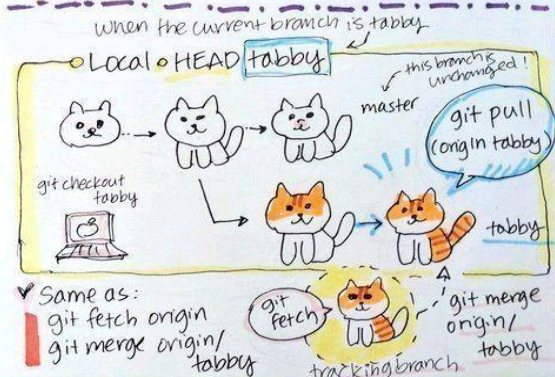 when the current branch is tabby
Local HEAD tabby
this branch is
unchanged!
master
git pull
(origin tabby)
git checkout
tabby
tabby
✔ Same as:
git fetch origin
git merge origin/
tabby
git
fetch
tracking branch
git merge
origin/
tabby